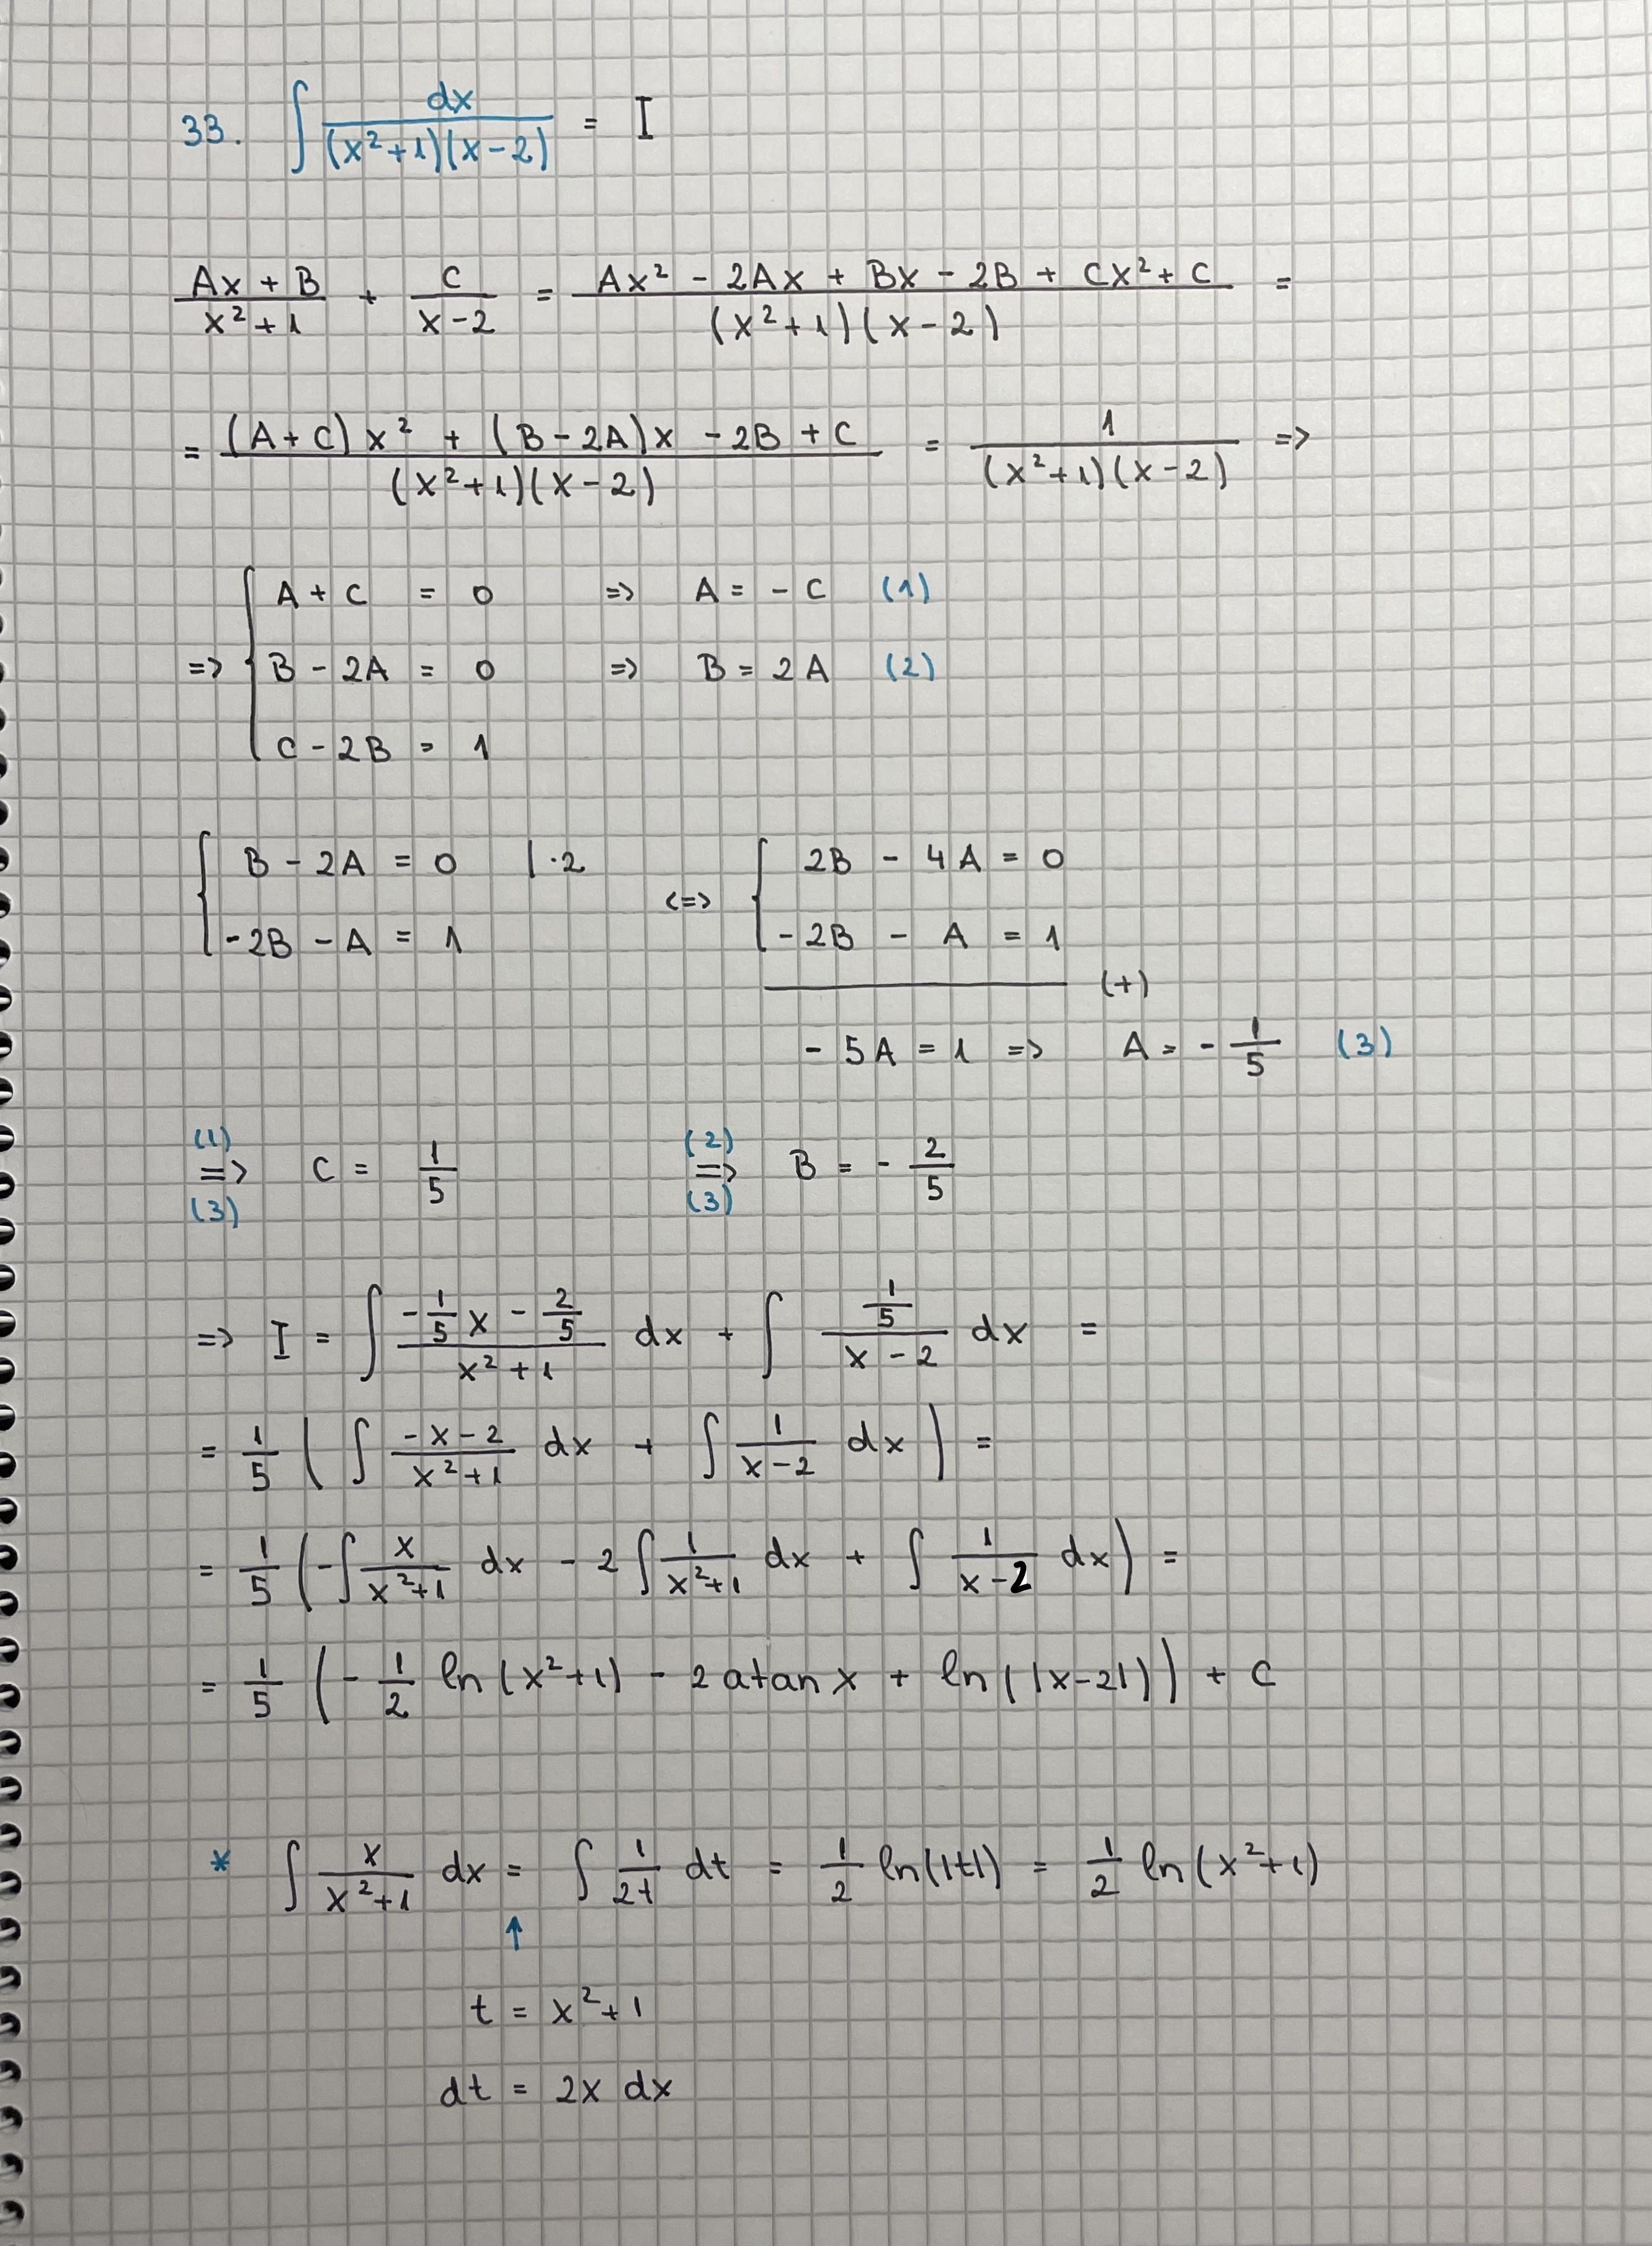 33. ∫ dx / (x²+1)(x-2) = I
(Ax + B)/(x²+1) + C/(x-2) = (Ax² - 2Ax + Bx - 2B + Cx² + C)/((x²+1)(x-2)) =
= ((A+C)x² + (B-2A)x - 2B + C)/((x²+1)(x-2)) = 1/((x²+1)(x-2)) =>
A + C = 0 => A = - C (1)
=> { B - 2A = 0 => B = 2A (2)
C - 2B = 1
{ B - 2A = 0 | ·2 <=> { 2B - 4A = 0
-2B - A = 1 -2B - A = 1
(+)
- 5A = 1 => A = - 1/5 (3)
(1) => (3) C = 1/5 (2) => (3) B = - 2/5
=> I = ∫ (-1/5 x - 2/5)/(x²+1) dx + ∫ (1/5)/(x-2) dx =
= 1/5 ( ∫ (-x-2)/(x²+1) dx + ∫ 1/(x-2) dx ) =
= 1/5 ( -∫ x/(x²+1) dx - 2 ∫ 1/(x²+1) dx + ∫ 1/(x-2) dx ) =
= 1/5 ( - 1/2 ln(x²+1) - 2 atan x + ln(|x-2|) ) + C
* ∫ x/(x²+1) dx = ∫ 1/(2t) dt = 1/2 ln(|t|) = 1/2 ln(x²+1)
↑
t = x²+1
dt = 2x dx